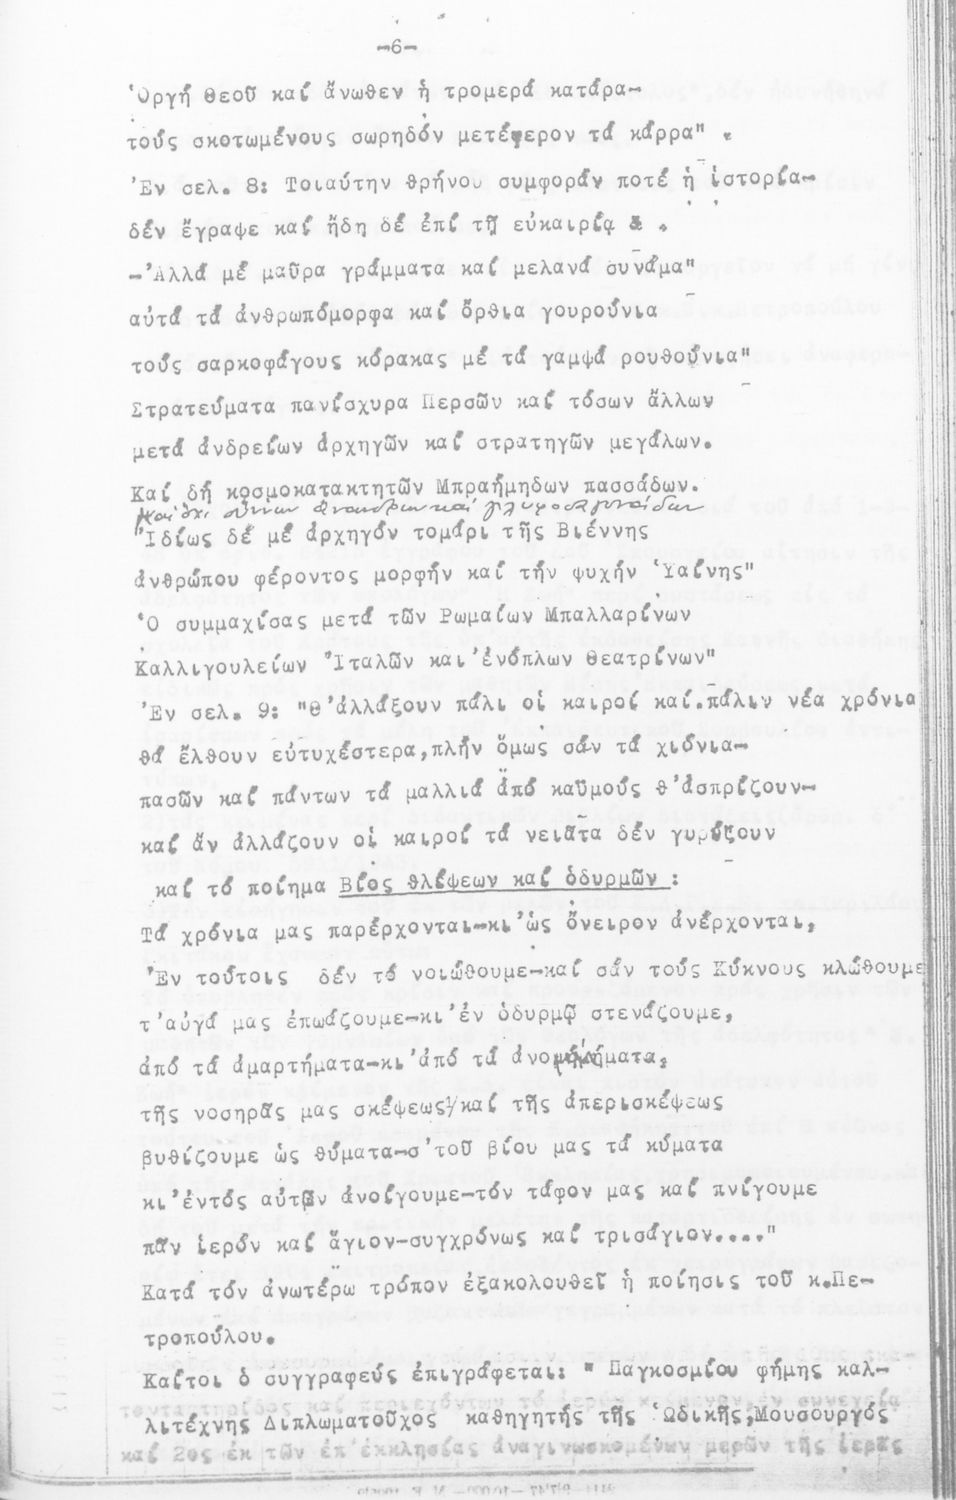 -6-
Ὀργή Θεοῦ καί ἄνωθεν ἡ τρομερά κατάρα-
τούς σκοτωμένους σωρηδόν μετέφερον τά κάρρα" .
Ἐν σελ. 8: Τοιαύτην θρήνου συμφοράν ποτέ ἡ ἱστορία-
δέν ἔγραψε καί ἤδη δέ ἐπί τῇ εὐκαιρίᾳ .
-Ἀλλά μέ μαῦρα γράμματα καί μελανά συνάμα"
αὐτά τά ἀνθρωπόμορφα καί ὄρθια γουρούνια
τούς σαρκοφάγους κόρακας μέ τά γαμψά ρουθούνια"
Στρατεύματα πανίσχυρα Περσῶν καί τόσων ἄλλων
μετά ἀνδρείων ἀρχηγῶν καί στρατηγῶν μεγάλων.
Καί δή κοσμοκατακτητῶν Μπραήμηδων πασσάδων.
καί ὄχι
"Ἰδίως δέ μέ ἀρχηγόν τομάρι τῆς Βιέννης
ἀνθρώπου φέροντος μορφήν καί τήν ψυχήν Ὑαίνης"
Ὁ συμμαχίσας μετά τῶν Ρωμαίων Μπαλλαρίνων
Καλλιγουλείων Ἰταλῶν και ἐνόπλων Θεατρίνων"
Ἐν σελ. 9: "Θ'ἀλλάξουν πάλι οἱ καιροί καί.πάλιν νέα χρόνια
θά ἔλθουν εὐτυχέστερα,πλήν ὅμως σάν τά χιόνια-
πασῶν καί πάντων τά μαλλιά ἀπό καϋμούς θ'ἀσπρίζουν-
καί ἄν ἀλλάζουν οἱ καιροί τά νειᾶτα δέν γυρίζουν
καί τό ποίημα Βίος θλίψεων καί ὀδυρμῶν :
Τά χρόνια μας παρέρχονται-κι'ὡς ὄνειρον ἀνέρχονται,
Ἐν τούτοις δέν τό νοιώθουμε-καί σάν τούς Κύκνους κλώθουμε
τ'αὐγά μας ἐπωάζουμε-κι'ἐν ὀδυρμῷ στενάζουμε,
ἀπό τά ἁμαρτήματα-κι'ἀπό τά ἀνομήματα,
τῆς νοσηρᾶς μας σκέψεως/καί τῆς ἀπερισκέψεως
βυθίζουμε ὡς θύματα-σ'τοῦ βίου μας τά κύματα
κι'ἐντός αὐτῶν ἀνοίγουμε-τόν τάφον μας καί πνίγουμε
πᾶν ἱερόν καί ἅγιον-συγχρόνως καί τρισάγιον...."
Κατά τόν ἀνωτέρω τρόπον ἐξακολουθεῖ ἡ ποίησις τοῦ κ.Πε-
τροπούλου.
Καίτοι ὁ συγγραφεύς ἐπιγράφεται: " Παγκοσμίου φήμης καλ-
λιτέχνης Διπλωματοῦχος καθηγητής τῆς Ὠδικῆς,Μουσουργός